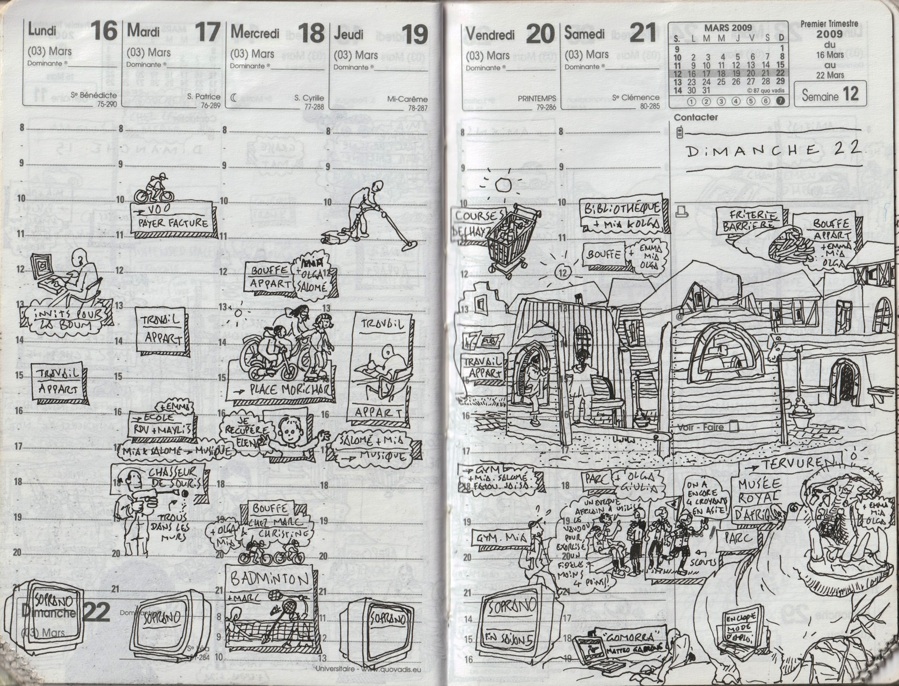 Lundi 16
(03) Mars
Dominante
Sᵉ Bénédicte
75-290
Mardi 17
(03) Mars
Dominante
S. Patrice
76-289
Mercredi 18
(03) Mars
Dominante
S. Cyrille
77-288
Jeudi 19
(03) Mars
Dominante
Mi-Carême
78-287
8
9
10
11
12
13
14
15
16
17
18
19
20
21
INVITS POUR
LA BOUM
TRAVAIL
APPART
→ VOO
PAYER FACTURE
TRAVAIL
APPART
+ EMMA
→ ECOLE
RDV + MAYLIS
MIA & SALOMÉ → MUSIQUE
CHASSEUR
DE SOURIS
TROUS
DANS LES
MURS
BOUFFE
APPART
+ OLGA
SALOMÉ
→ PLACE MORICHAR
JE
RECUPERE
BOUFFE
CHEZ MARC
& CHRISTINE
+ OLGA
MIA
BADMINTON
+ MARC
TRAVAIL
APPART
SALOMÉ + MIA
→ MUSIQUE
Dimanche 22
(03) Mars
SOPRANO
SOPRANO
SOPRANO
Universitaire - www.quovadis.eu
Vendredi 20
(03) Mars
Dominante
PRINTEMPS
79-286
Samedi 21
(03) Mars
Dominante
Sᵉ Clémence
80-285
MARS 2009
S. L M M J V S D
9 1
10 2 3 4 5 6 7 8
11 9 10 11 12 13 14 15
12 16 17 18 19 20 21 22
13 23 24 25 26 27 28 29
14 30 31
© 87 quo vadis
1 2 3 4 5 6 7
Premier Trimestre
2009
du
16 Mars
au
22 Mars
Semaine 12
Contacter
DIMANCHE 22
COURSES
BIBLIOTHÈQUE
+ MIA & OLGA
BOUFFE
+ EMMA
MIA
OLGA
FRITERIE
BARRIÈRE
BOUFFE
APPART
+ EMMA
MIA
OLGA
TRAVAIL
APPART
Voir - Faire
→ GYM
+ MIA. SALOMÉ
GYM. MIA
PARC
+ OLGA
GIULIA
ON A
ENCORE
4 CROYANTS
EN ASIE
SCOUTS
→ TERVUREN
MUSÉE
ROYAL
D'AFRIQUE
PARC
+ EMMA
MIA
OLGA
SOPRANO
EN SAISON 5
"GOMORRA"
ENCORE
MODE
D'EMPLOI